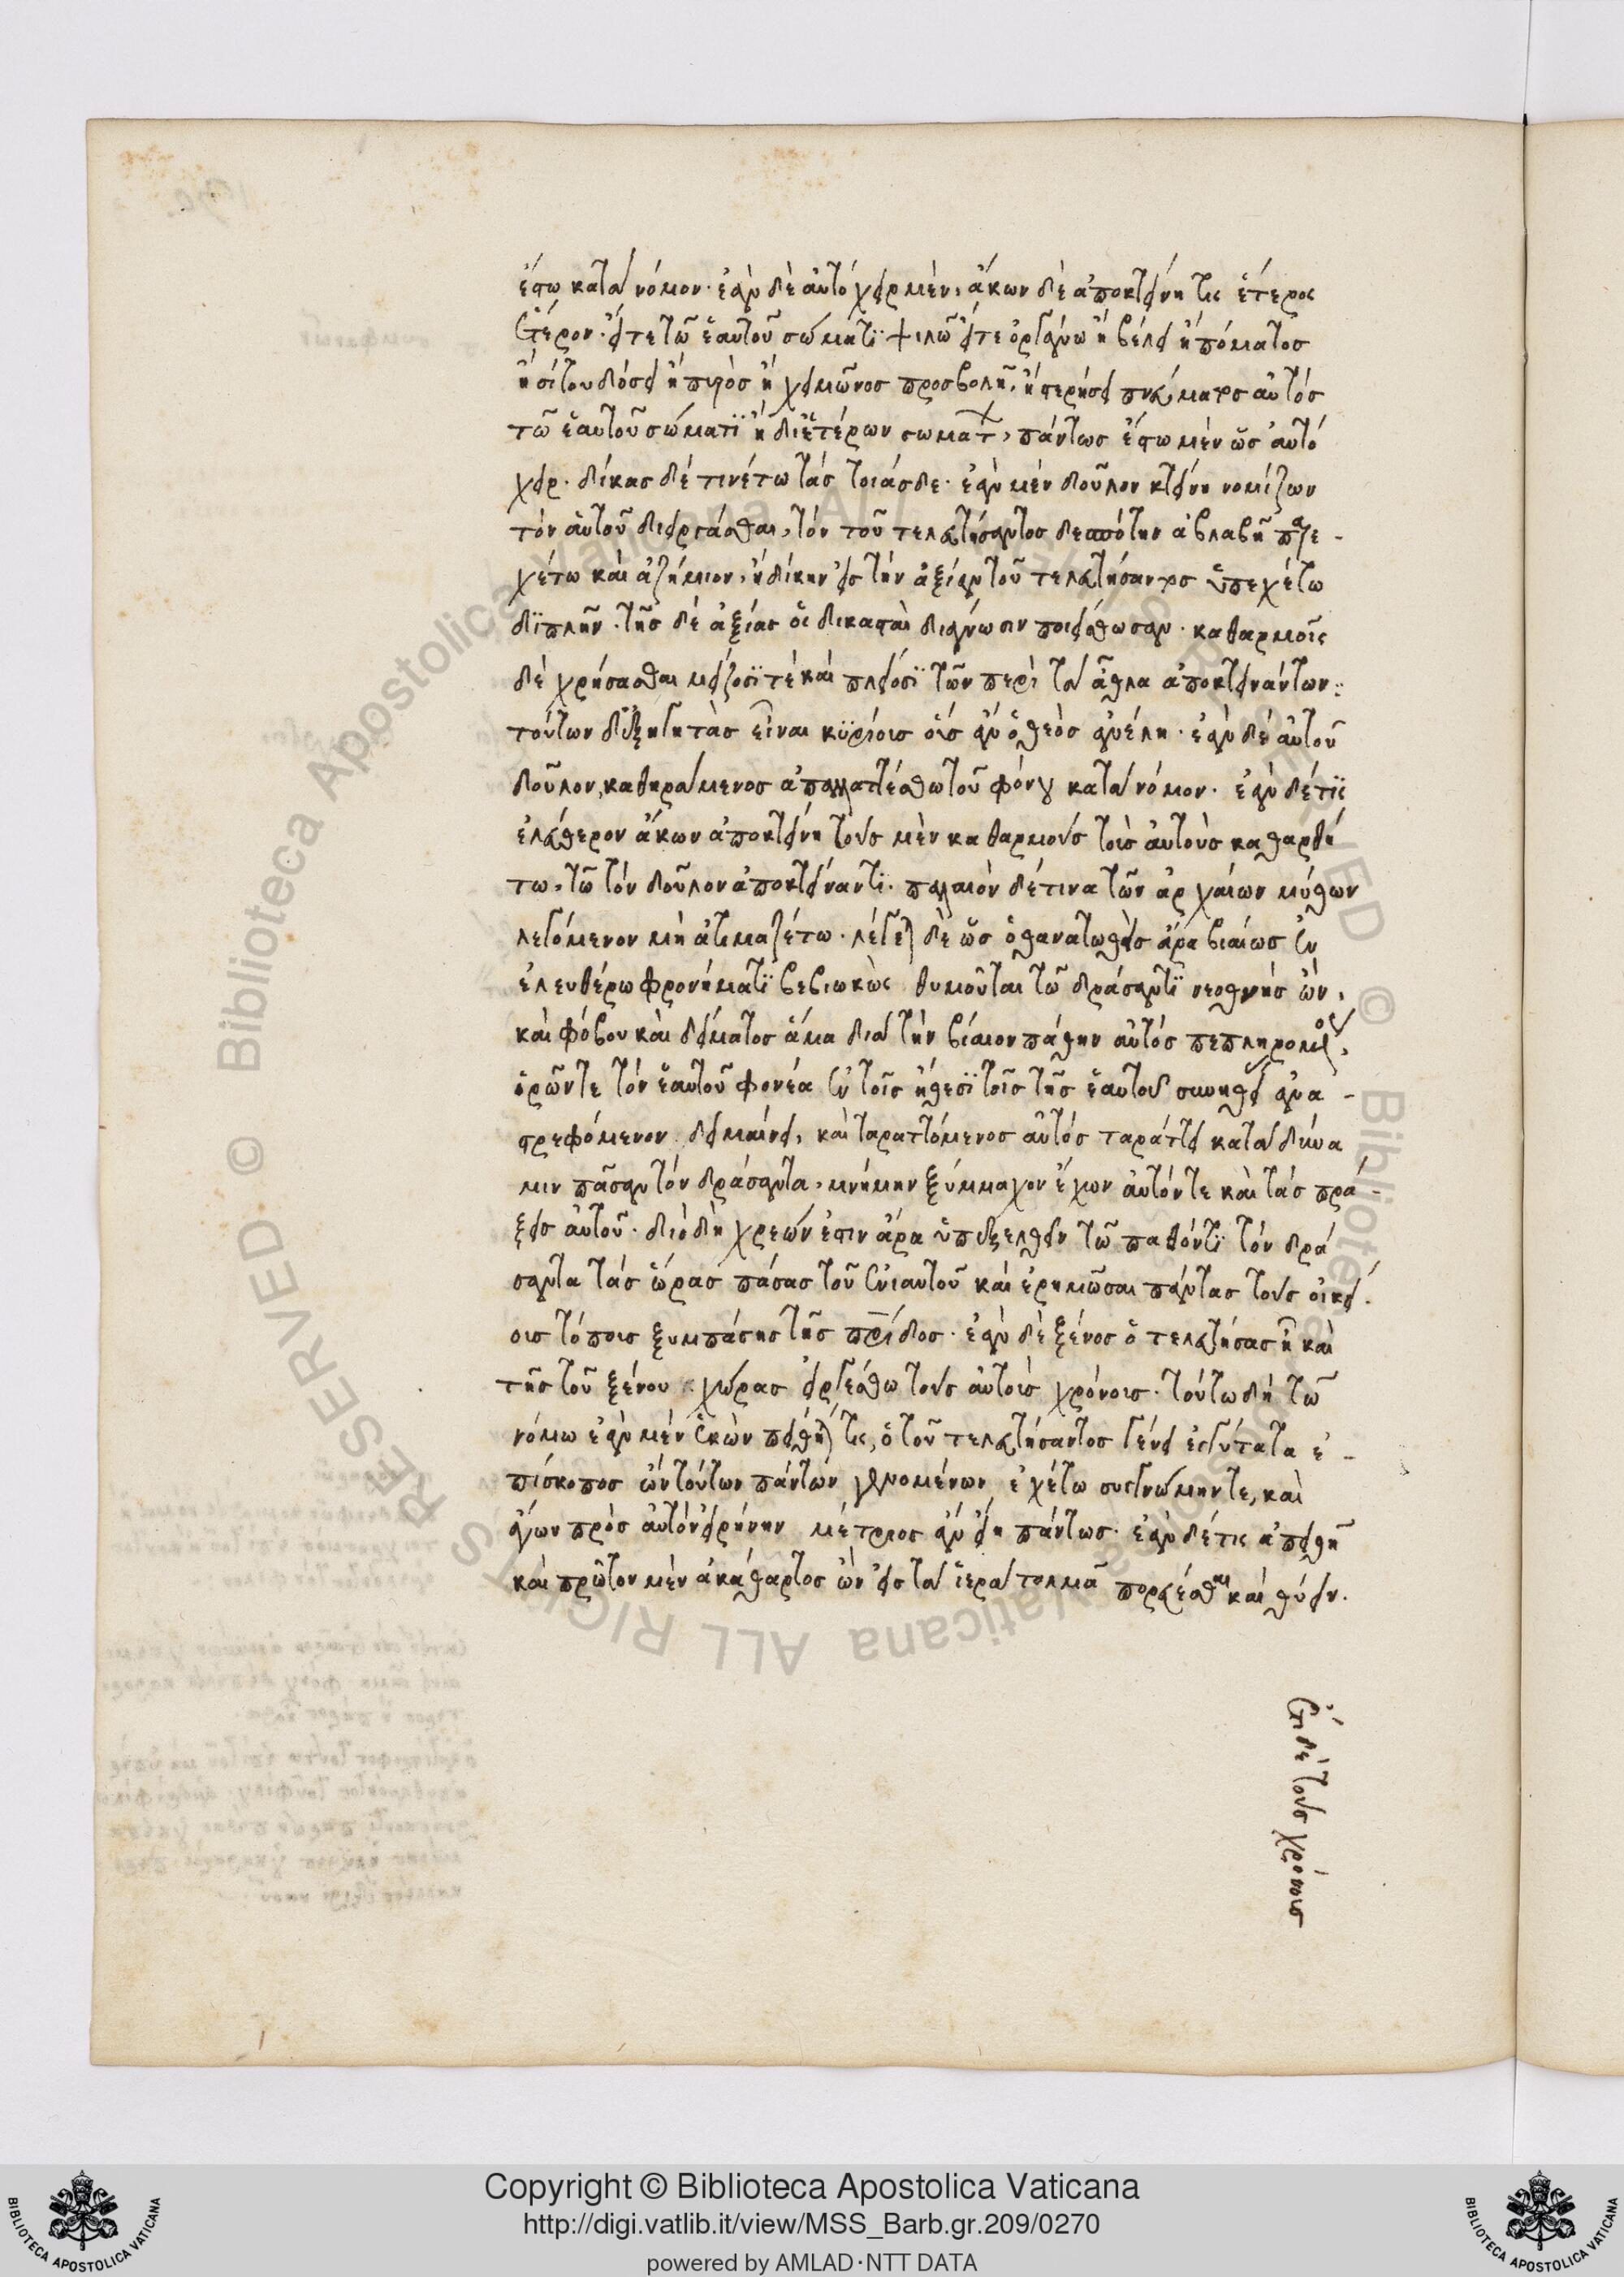 ἔστω κατὰ νόμον· ἐὰν δὲ αὐτόχειρ μὲν, ἄκων δὲ ἀποκτείνη τις ἕτερος
ἕτερον· εἴτε τῶ ἑαυτοῦ σώματϊ ψιλῶ εἴτε ὀργάνω ἢ βέλει ἢ πόματος
ἢ σίτου δόσει ἢ πυρὸς ἢ χειμῶνος προσβολῆ, ἢ στερήσει πνεύματος αὐτὸς
τῶ ἑαυτοῦ σώματϊ ἢ δι' ἑτέρων σωμάτ, πάντως ἔστω μὲν ὡς αὐτό
χειρ· δίκας δὲ τινέτω τὰς τοιάσδε· ἐὰν μὲν δοῦλον κτείνη νομίζων
τὸν αὑτοῦ διειργάσθαι, τὸν τοῦ τελευτήσαντος δεσπότην ἀβλαβῆ παρε-
χέτω καὶ ἀζήμιον, ἢ δίκην εἰς τὴν ἀξίαν τοῦ τελευτήσαντος ὑπεχέτω
δϊπλῆν· τῆς δὲ ἀξίας οἱ δικασταὶ διάγνωσιν ποιείσθωσαν· καθαρμοῖς
δὲ χρήσασθαι μείζοσϊ τὲ καὶ πλείοσϊ τῶν περὶ τὰ ἆθλα ἀποκτεινάντων:
τούτων δ' ἐξηγητὰς εἶναι κϋρίους οὓς ἂν ὁ θεὸς ἀνέλη· ἐὰν δὲ αὑτοῦ
δοῦλον, καθηράμενος ἀπαλλαττέσθω τοῦ φόνου κατὰ νόμον· ἐὰν δέ τϊς
ἐλεύθερον ἄκων ἀποκτείνη τοὺς μὲν καθαρμοὺς τοὺς αὐτοὺς καθαρθή
τω, τῶ τὸν δοῦλον ἀποκτείναντϊ· παλαιὸν δέ τινα τῶν ἀρχαίων μύθων
λεγόμενον μὴ ἀτιμαζέτω· λέγεται δὲ ὡς ὁ θανατωθεὶς ἄρα βιαίως ἐν
ἐλευθέρω φρονήματϊ βεβιωκὼς θυμοῦται τῶ δράσαντϊ νεοθνὴς ὢν,
καὶ φόβου καὶ δείματος ἅμα διὰ τὴν βίαιον πάθην αὐτὸς πεπληρομένος,
ὁρῶν τε τὸν ἑαυτοῦ φονέα ἐν τοῖς ἤθεσϊ τοῖς τῆς ἑαυτοῦ συνηθείας ἀνα-
στρεφόμενον δειμαίνει, καὶ ταραττόμενος αὐτὸς ταράττει κατὰ δύνα
μιν πᾶσαν τὸν δράσαντα, μνήμην ξύμμαχον ἔχων αὐτόν τε καὶ τὰς πρά-
ξεις αὐτοῦ· διὸ δὴ χρεών ἐστιν ἄρα ὑπεξελθεῖν τῶ παθόντϊ τὸν δρά
σαντα τὰς ὥρας πάσας τοῦ ἐνιαυτοῦ καὶ ἐρημῶσαι πάντας τοὺς οἰκεί-
ους τόπους ξυμπάσης τῆς πρίδος· ἐὰν δὲ ξένος ὁ τελευτήσας ἦ καὶ
τῆς τοῦ ξένου χώρας εἰργέσθω τοὺς αὐτοὺς χρόνους· τούτω δὴ τῶ
νόμω ἐὰν μὲν ἑκὼν πείθηται τις, ὁ τοῦ τελευτήσαντος γένει ἐγγύτατα ἐ-
πίσκοπος ὢν τούτων πάντων γενομένων ἐχέτω συγγνώμην τε, καὶ
ἄγων πρὸς αὐτὸν εἰρήνην μέτριος ἂν εἴη πάντως· ἐὰν δέ τις ἀπειθῆ
καὶ πρῶτον μὲν ἀκάθαρτος ὢν εἰς τὰ ἱερὰ τολμᾶ πορεύεσθαι καὶ θύειν.
ἔτι δὲ τοὺς χρόνους
Copyright © Biblioteca Apostolica Vaticana
http://digi.vatlib.it/view/MSS_Barb.gr.209/0270
powered by AMLAD·NTT DATA